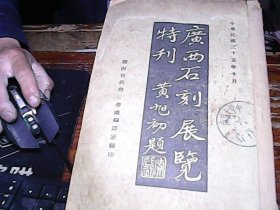 中華民國三十五年十月
廣西石刻展覽
特刊
黃旭初題
廣西省政府
編譯室編印